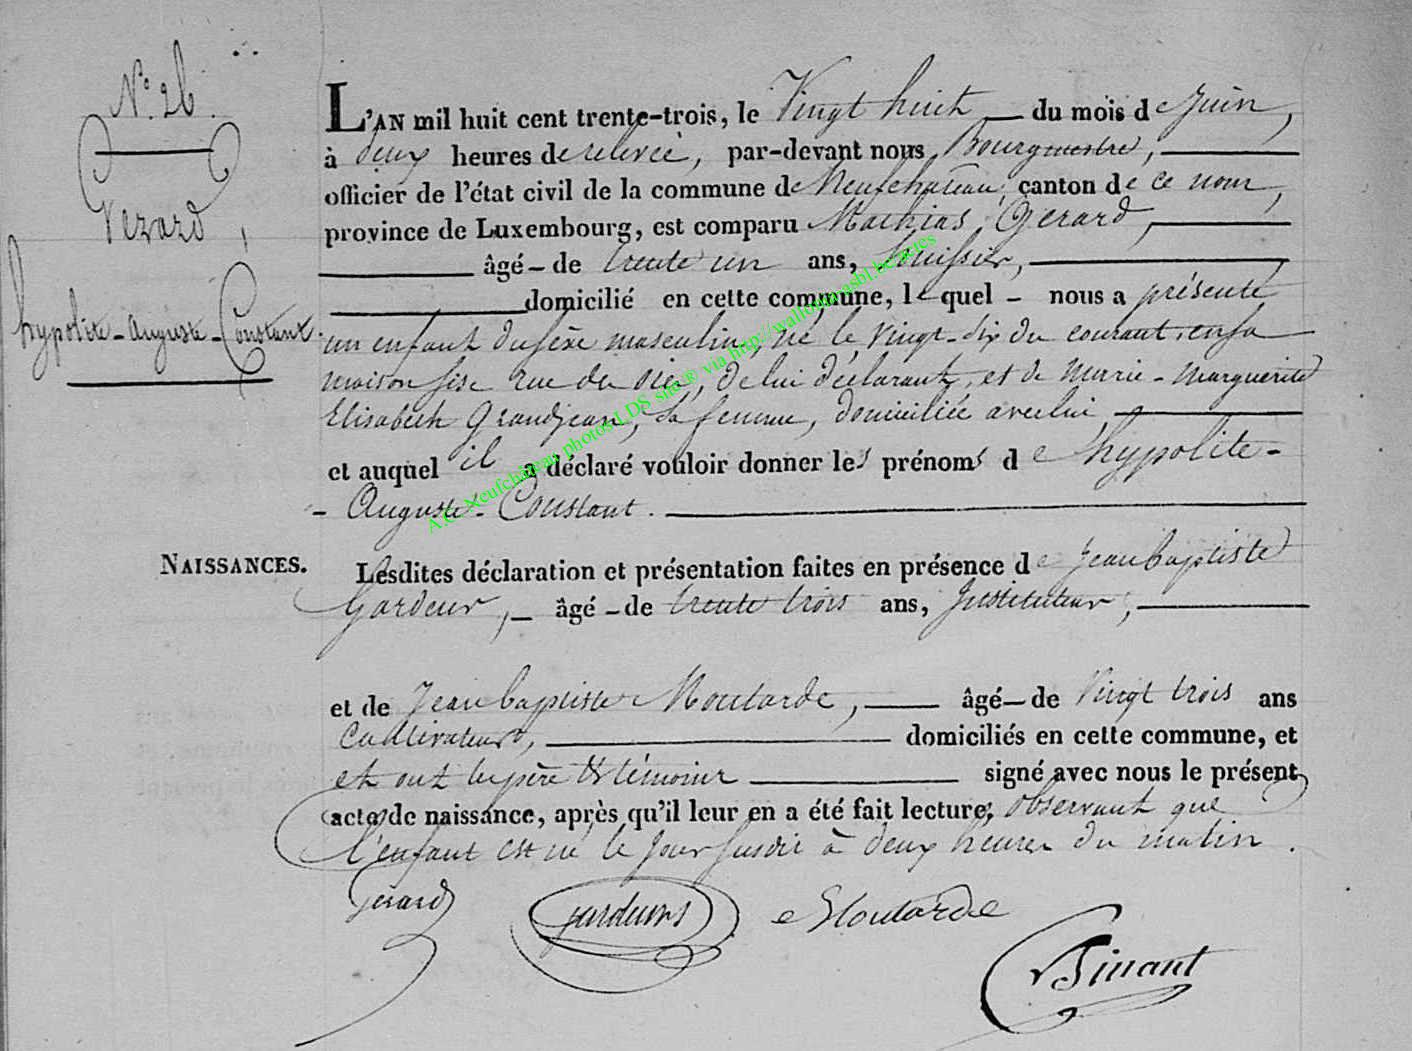 N.° 26.
Gerard,
hypolite-Auguste-Constant.
L'AN mil huit cent trente-trois, le Vingt huit du mois de Juin,
à deux heures de relevée, par-devant nous Bourgmestre,
officier de l'état civil de la commune de Neufchateau, canton de ce nom,
province de Luxembourg, est comparu Mathias Gerard,
âgé de trente un ans, huissier,
domicilié en cette commune, lequel nous a présenté
un enfant du sèxe masculin, né le vingt-six du courant, en sa
maison sise rue du , de lui déclarant, et de Marie-Marguerite
Elisabeth Grandjean, sa femme, domiciliée avec lui,
et auquel il a déclaré vouloir donner les prénoms de hypolite-
-Auguste-Constant.
NAISSANCES.
Lesdites déclaration et présentation faites en présence de Jean baptiste
Gardeur, âgé de trente trois ans, Instituteur,
et de Jean baptiste Moutarde, âgé de Vingt trois ans
Cultivateur, domiciliés en cette commune, et
et ont le père & témoins signé avec nous le présent
acte de naissance, après qu'il leur en a été fait lecture, observant que
l'enfant est né le jour susdit à deux heures du matin.
Gerard
Moutarde
A.C. Neufchâteau photos LDS site ® via http://wallonia-asbl.be/actes